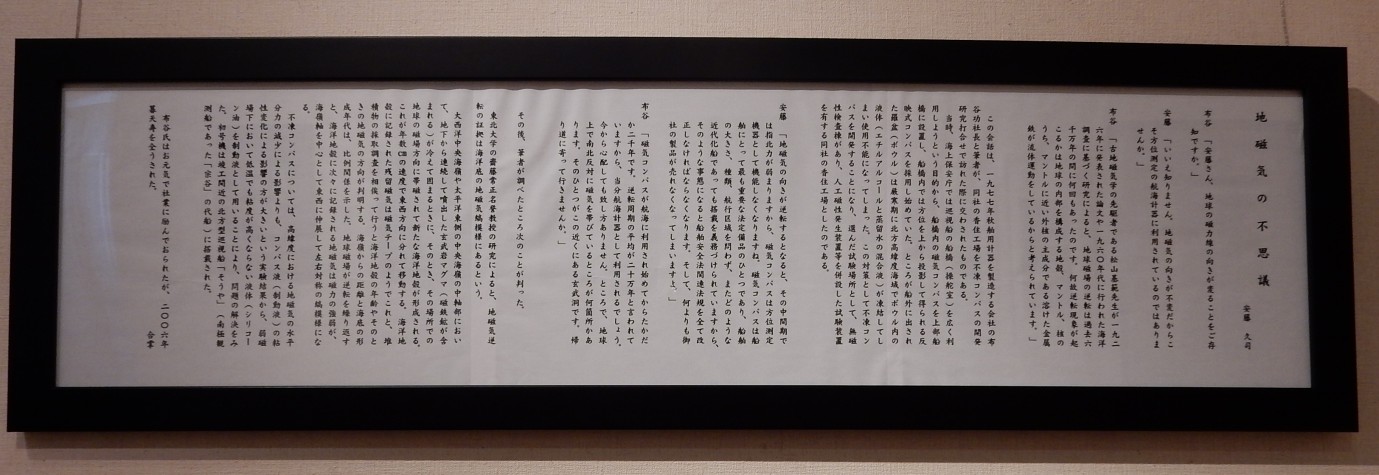 地磁気の不思議
安藤 久司
布谷 「安藤さん、地球の磁力線の向きが変ることをご存
知ですか。」
安藤 「いいえ知りません。地磁気の向きが不変だからこ
そ方位測定の航海計器に利用されているのではありま
せんか。」
布谷 「古地磁気学の先駆者である松山基範先生が一九二
六年に発表された論文や一九六〇年代に行われた海洋
調査に基づく研究によると、地球磁場の逆転は過去六
千万年の間に何回もあったのです。何故逆転現象が起
こるかは地球の内部を構成する地殻、マントル、核の
うち、マントルに近い外核の主成分である溶けた金属
鉄が流体運動をしているからと考えられています。」
この会話は、一九七七年秋舶用計器を製造する会社の布
谷功社長と筆者が、同社の香住工場を不凍コンパスの開発
研究打合せで訪れた際に交わされたものである。
当時、海上保安庁では巡視船の船橋(操舵室)を広く利
用しようという目的から、船橋内の磁気コンパスを上部船
橋に設置し、船橋内では方位を上から投影して得られる反
映式コンパスを採用し始めていた。ところが船外に出され
た羅盆(ボウル)は厳寒期に北方高緯度海域でボウル内の
液体(エチルアルコールと蒸留水の混合液)が凍結してし
まい使用不能になってしまった。この対策として不凍コン
パスを開発することになり、選んだ試験場所として、無磁
性検査棟があり、人工磁性発生装置等を併設した試験装置
を有する同社の香住工場としたのである。
安藤 「地磁気の向きが逆転するとなると、その中間期で
は指北力が弱まりますから、磁気コンパスは方位測定
機器として機能しなくなりますね。磁気コンパスは船
舶にとって最も重要な法定備品のひとつであり、船舶
の大きさ、種類、航行区域を問わず、またどのような
近代化船であっても搭載を義務づけられていますから、
そのような事態になると船舶安全法関連法規を全て改
正しなければならなくなります。そして、何よりも御
社の製品が売れなくなってしまいますよ。」
布谷 「磁気コンパスが航海に利用され始めてからたかだ
か二千年です。逆転周期の平均が二十万年と言われて
いますから、当分航海計器として利用されるでしょう。
今から心配しても致し方ありません。ところで、地球
上で南北反対に磁気を帯びているところが何箇所かあ
ります。そのひとつがこの近くにある玄武洞です。帰
り道に寄って行きませんか。」
その後、筆者が調べたところ次のことが判った。
東北大学の齋藤常正名誉教授の研究によると、地磁気逆
転の証拠は海洋底の地磁気縞模様にあるという。
大西洋中央海嶺や太平洋東側の中央海嶺の中軸部におい
て、地下から連続して噴出した玄武岩マグマ(磁鉄鉱が含
まれる)が冷えて固まるときに、そのとき、その場所での
地球の磁場方向に帯磁されて新たな海洋地殻が形成される。
これが年数cmの速度で東西方向に分れて移動する。海洋地
殻に記録された残留磁気は磁気テープのようでこれと、堆
積物の採取調査を相俟って行うと海洋地殻の年齢やそのと
きの地磁気の方向が判明する。海嶺からの距離と海底の形
成年代は、比例関係を示した。地球磁場が逆転を繰り返す
と、海洋地殻に次々に記録される地磁気は磁力の強弱が、
海嶺軸を中心として東西に伸展して左右対称の縞模様にな
る。
不凍コンパスについては、高緯度における地磁気の水平
分力の減少による影響よりも、コンパス液(制動液)の粘
性変化による影響の方が大きいという実験結果から、弱磁
場下において低温でも粘度が高くならない液体(シリコー
ン油)を制動液として用いることにより、問題の解決をみ
た。初号機は竣工間近の北方型巡視船「そうや」(南極観
測船であった「宗谷」の代船)に搭載された。
布谷氏はお元気で社業に励んでおられたが、二〇〇六年
暮天寿を全うされた。
合掌